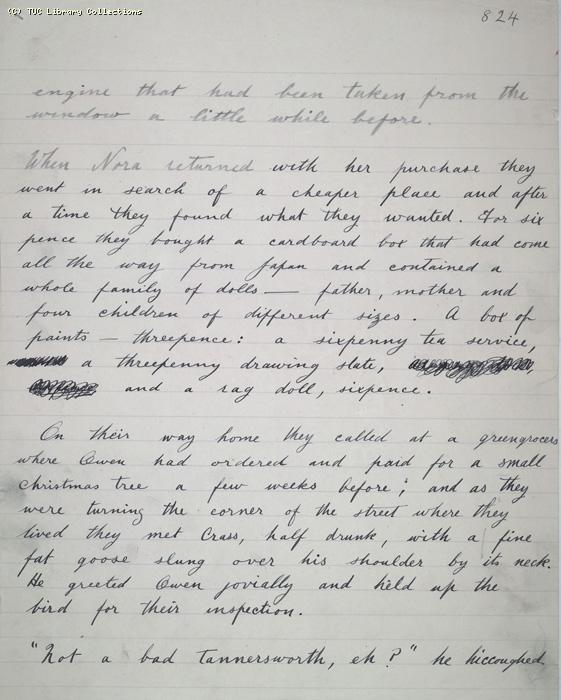 (C) TUC Library Collections
824
engine that had been taken from the
window a little while before.
When Nora returned with her purchase they
went in search of a cheaper place and after
a time they found what they wanted. For six
pence they bought a cardboard box that had come
all the way from Japan and contained a
whole family of dolls — father, mother and
four children of different sizes. A box of
paints — threepence: a sixpenny tea service,
a threepenny drawing slate,
and a rag doll, sixpence.
On their way home they called at a greengrocers
where Owen had ordered and paid for a small
Christmas tree a few weeks before; and as they
were turning the corner of the street where they
lived they met Crass, half drunk, with a fine
fat goose slung over his shoulder by its neck.
He greeted Owen jovially and held up the
bird for their inspection.
"Not a bad tannersworth, eh?" he hiccoughed,